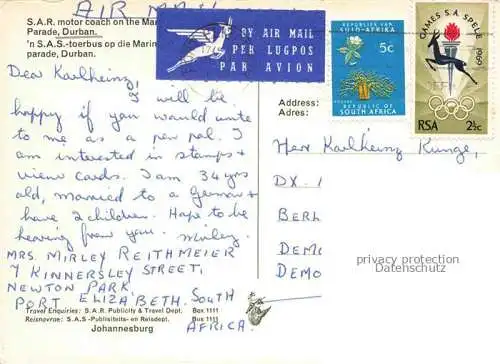 AIR MAIL
S.A.R. motor coach on the Mar
Parade, Durban.
'n S.A.S.-toerbus op die Marin
parade, Durban.
BY AIR MAIL
PER LUGPOS
PAR AVION
REPUBLIEK VAN
SUID-AFRIKA
5c
REPUBLIC OF
SOUTH AFRICA
GAMES S.A. SPELE 1969
RSA 2½c
Dear Karlheinz,
I will be
happy if you would write
to me as a pen pal. I
am interested in stamps &
view cards. I am 34 yrs
old, married to a German &
have 2 children. Hope to be
hearing from you. Mirley.
MRS. MIRLEY REITHMEIER
7 KINNERSLEY STREET,
NEWTON PARK,
PORT ELIZABETH. SOUTH
AFRICA.
Travel Enquiries: S.A.R. Publicity & Travel Dept. Box 1111
Reisnavrae: S.A.S.-Publisiteits- en Reisdept. Bus 1111
Johannesburg
Address:
Adres:
Herr Karlheinz Kunze,
DX.
BERL
DEMO
DEMO
privacy protection
Datenschutz